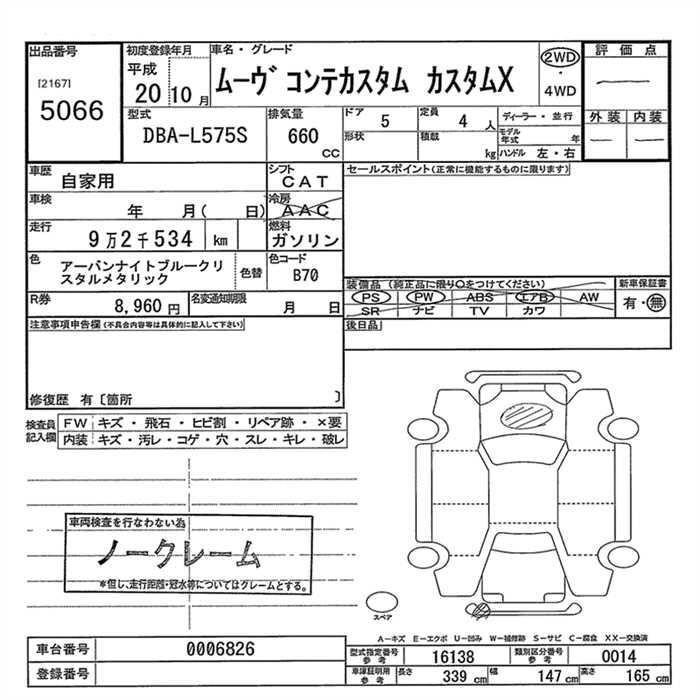 出品番号
[2167]
5066
初度登録年月
平成
20 10 月
車名・グレード
ムーヴ コンテカスタム カスタムX
2WD
・
4WD
評価点
外装 内装
型式
DBA-L575S
排気量
660
CC
ドア 5
形状
定員 4 人
積載 kg
ディーラー・並行
モデル年式 年
ハンドル 左・右
車歴 自家用
シフト CAT
セールスポイント(正常に機能するものに限ります)
車検 年 月( 日)
冷房 AAC
走行 9万2千534 km
燃料 ガソリン
色 アーバンナイトブルークリ
スタルメタリック
色替
色コード B70
装備品(純正品に限り○をつけてください)
PS PW ABS エアB AW
SR ナビ TV カワ
新車保証書
有・無
R券 8,960 円
名変通知期限 月 日
後日品
注意事項申告欄(不具合内容等は具体的に記入して下さい)
修復歴 有〔箇所 〕
検査員
記入欄
FW キズ・飛石・ヒビ割・リペア跡・×要
内装 キズ・汚レ・コゲ・穴・スレ・キレ・破レ
車両検査を行なわない為
ノークレーム
*但し、走行距離・冠水等についてはクレームとする。
スペア
A―キズ E―エクボ U―凹み W―補修跡 S―サビ C―腐食 XX―交換済
車台番号 0006826
登録番号
型式指定番号
参考
16138
類別区分番号
参考
0014
車庫証明用
参考
長さ 339 cm 幅 147 cm 高さ 165 cm